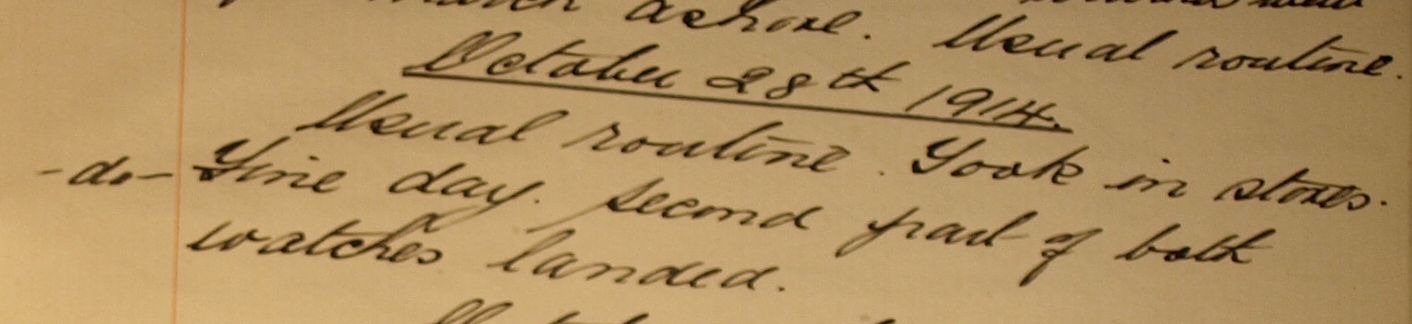 ashore. Usual routine.
October 28th 1914.
Usual routine. Took in stores.
-do- Fine day. Second part of both
watches landed.